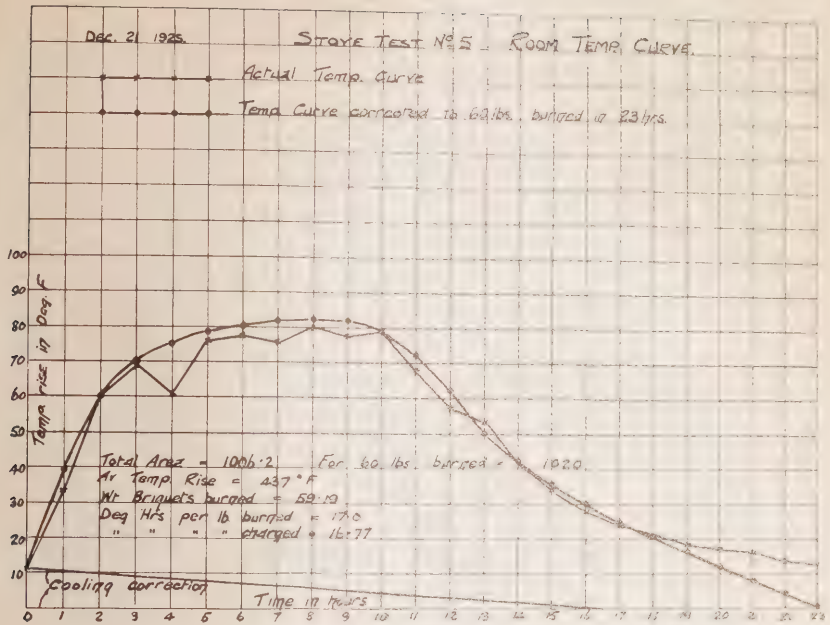 Dec. 21 1925. STOVE TEST Nº 5 ROOM TEMP. CURVE.
Actual Temp. Curve
Temp Curve corrected to 60 lbs. burned in 23 hrs.
100
90
80
70
60
50
40
30
20
10
Temp rise in Deg. F
Total Area = 1006.2 For 60 lbs. burned = 1020.
Av Temp. Rise = 437°F
Wt Briquets burned = 59.19
Deg Hrs per lb burned = 17.0
" " " " charged = 16.77
Cooling correction
Time in hours
0 1 2 3 4 5 6 7 8 9 10 11 12 13 14 15 16 17 18 19 20 21 22 23